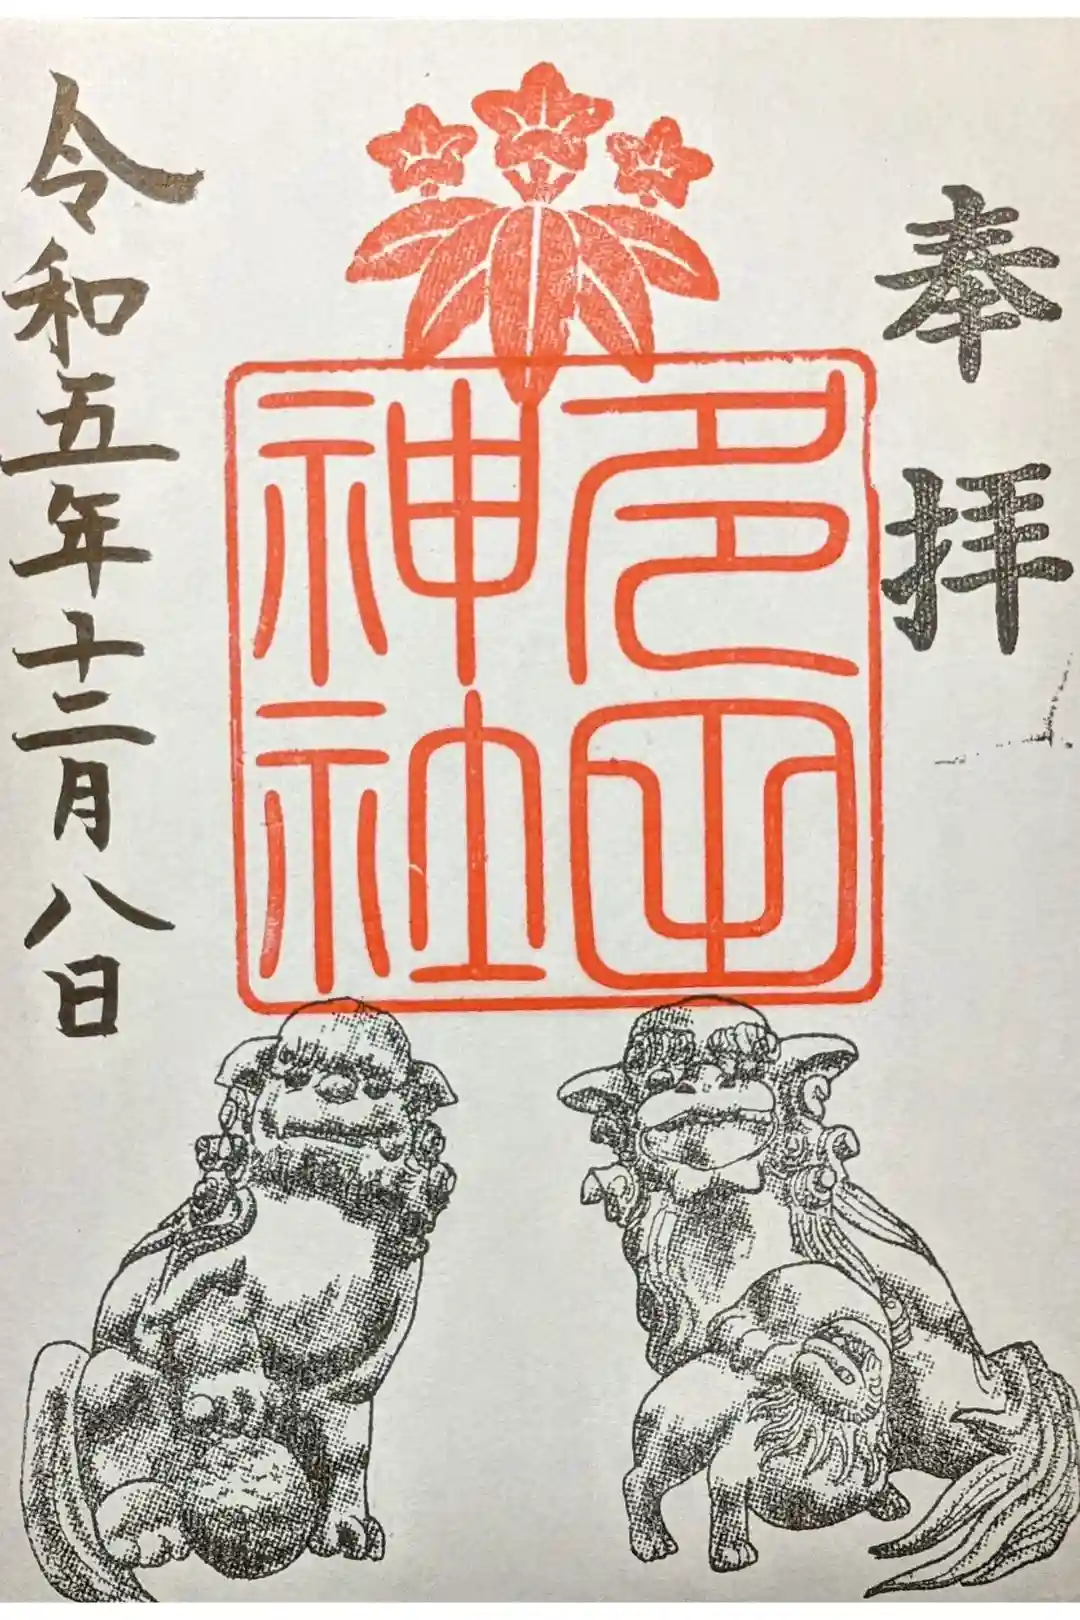 奉拝
多田
神社
令和五年十二月八日